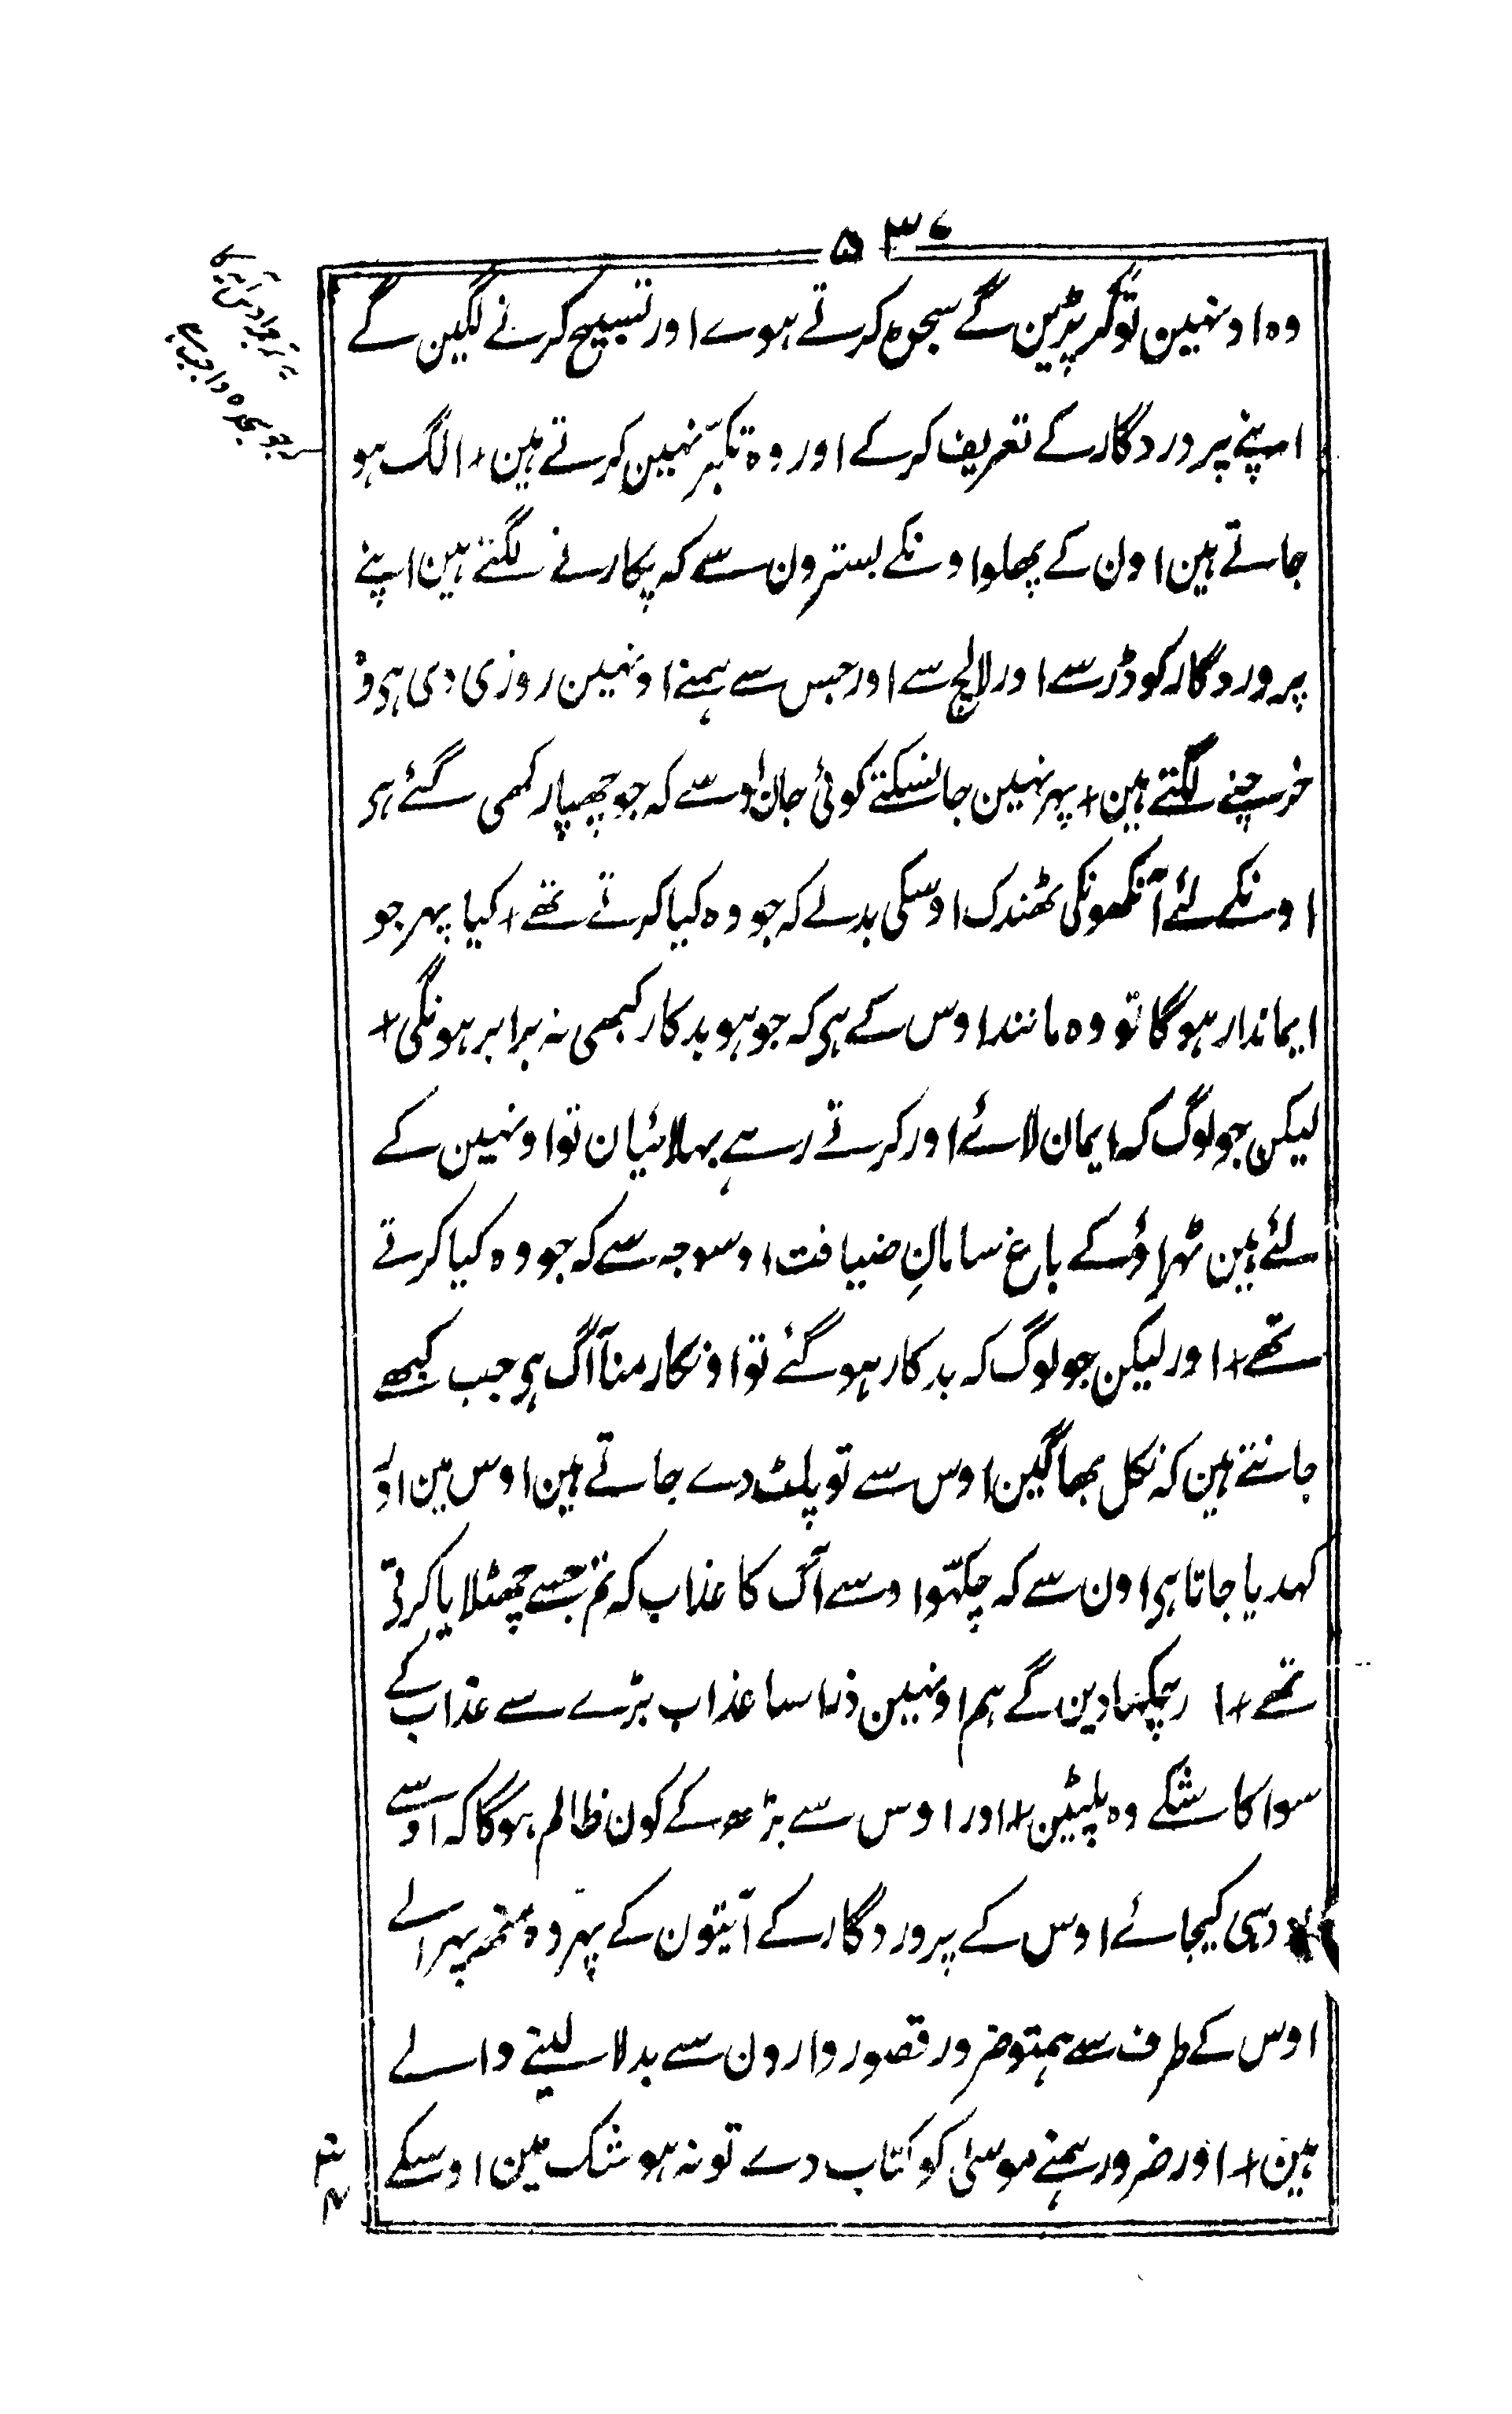 ۵۳۷
وہ اونہین تو گر پڑین گے سجدہ کرتے ہوے اور تسبیح کرنے لگین گے
اپنے پروردگار کے تعریف کر کے اور وہ تکبّر نہین کرتے ہین + الگ ہو
جاتے ہین اون کے پھلو اونکے بسترون سے کہ پکارنے لگتے ہین اپنے
پروردگار کو ڈر سے اور لالچ سے اور جس سے ہمنے اونہین روزی دی ہی وہ
خرچنے لگتے ہین + پہر نہین جانسکتے کوئی جان اوسے کہ جو چھپا رکھی گئے ہی
اونکے لئے آنکھونکی ٹھنڈک اوسکی بدلے کہ جو وہ کیا کرتے تھے + کیا پہر جو
ایماندار ہوگا تو وہ مانند اوس کے ہی کہ جو ہو بدکار کبھی نہ برابر ہونگی +
لیکن جو لوگ کہ ایمان لائے اور کرتے رہے بہلائیان تو اونہین کے
لئے ہین ٹہراؤ کے باغ سامانِ ضیافت اوسوجہ سے کہ جو وہ کیا کرتے
تھے + اور لیکن جو لوگ کہ بدکار ہو گئے تو اونکا رمنا آگ ہی جب کبھے
جانتے ہین کہ نکل بھاگین اوس سے تو پلٹ دے جاتے ہین اوس مین اور
کہدیا جاتا ہی اون سے کہ چکہّو اوسے آگ کا عذاب کہ تم جسے جھٹلایا کرتی
تھے + ا ر چکہا دین گے ہم اونہین ذرا سا عذاب بڑے سے عذاب کے
سوا کاشکے وہ پلٹین + اور اوس سے بڑھ کے کون ظالم ہوگا کہ اوسے
دہی کیجائے اوس کے پروردگار کے آیتون کے پہر وہ منھ پہرا لے
اوس کے طرف سے ہمتو ضرور قصور وارون سے بدلا لینے والے
ہین + اور ضرور ہمنے موسیٰ کو کتاب دے تو نہ ہو شک مین اوسکے